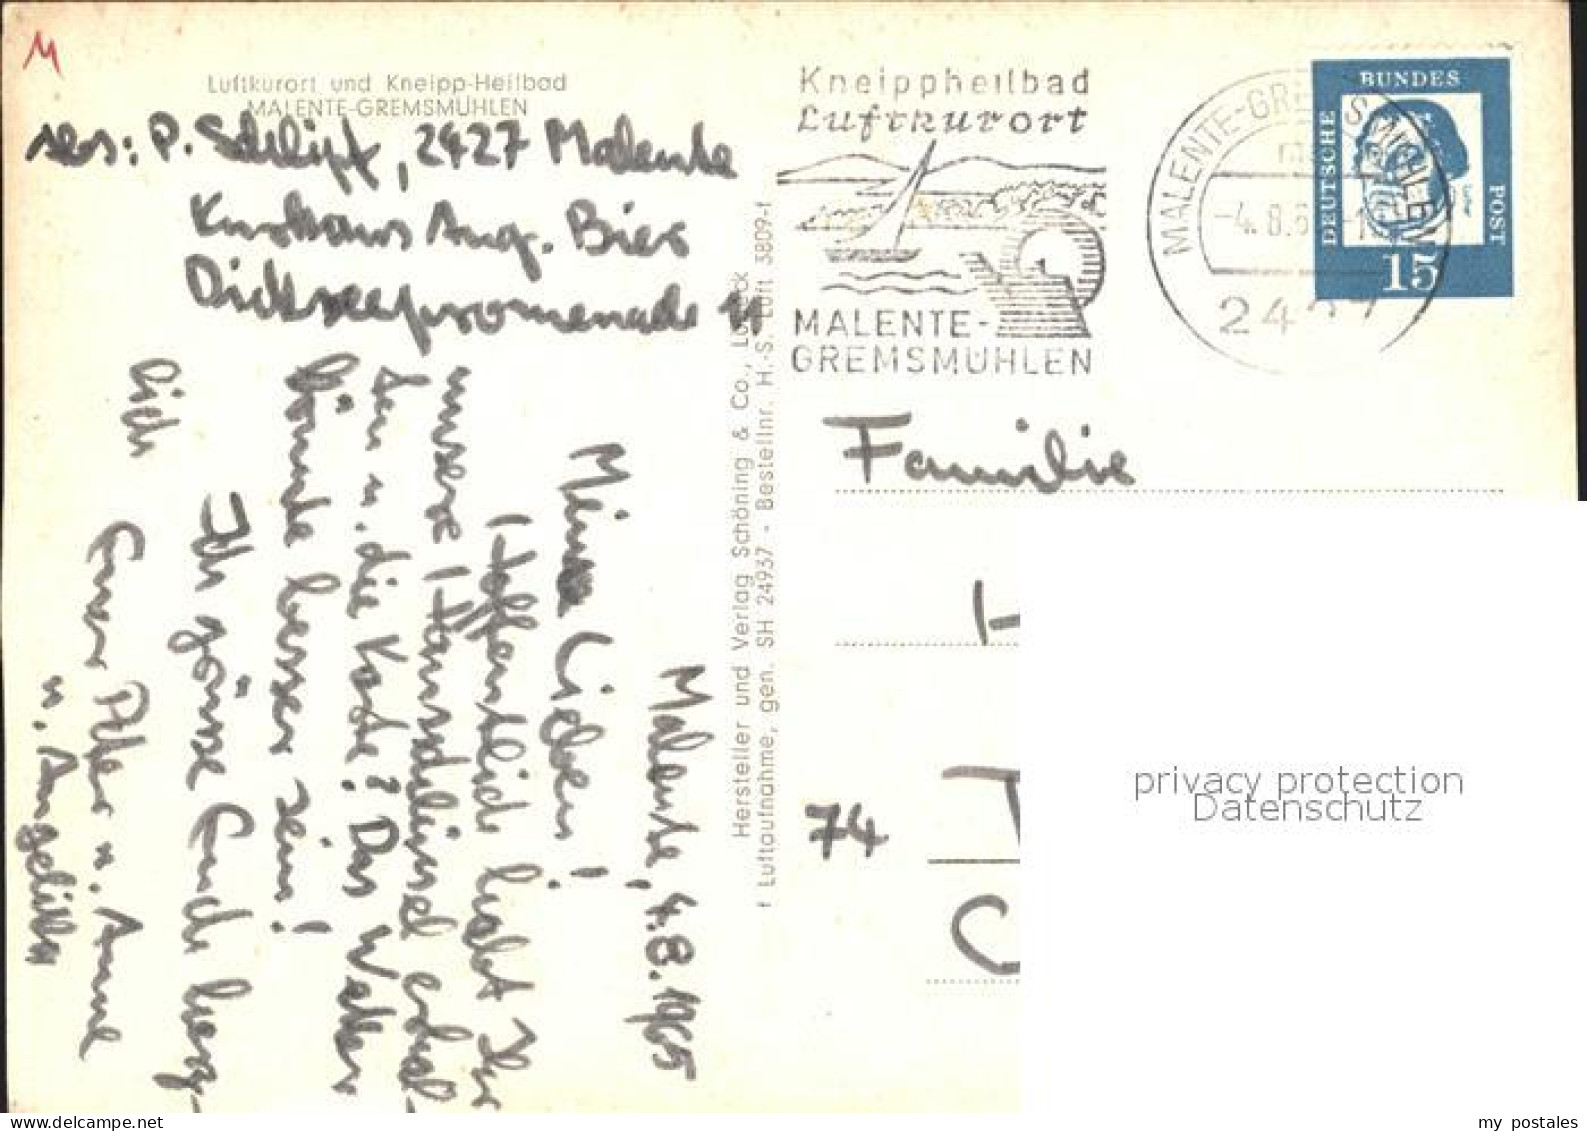 M
Luftkurort und Kneipp-Heilbad
MALENTE-GREMSMÜHLEN
Abs: P. Schlipf, 2427 Malente
Kurhaus Aug. Bier
Dieckseepromenade 11
Malente, 4.8.1965
Meine Lieben!
Hoffentlich habt Ihr
unsere Hausschlüssel erhal-
ten u. die Karte? Das Wetter
könnte besser sein!
Ich grüsse Euch herz-
lich
Euer Peter u. Anne
u. Angelika
Hersteller und Verlag Schöning & Co., Lübeck
f Luftaufnahme, gen. SH 24937 - Bestellnr. H.-S. Luft 3809-f
Kneippheilbad
Luftkurort
MALENTE-
GREMSMÜHLEN
MALENTE-GREMSMÜHLEN
-4.8.6
2427
DEUTSCHE
BUNDES
POST
15
Familie
H
T
74
C
privacy protection
Datenschutz
www.delcampe.net
my postales